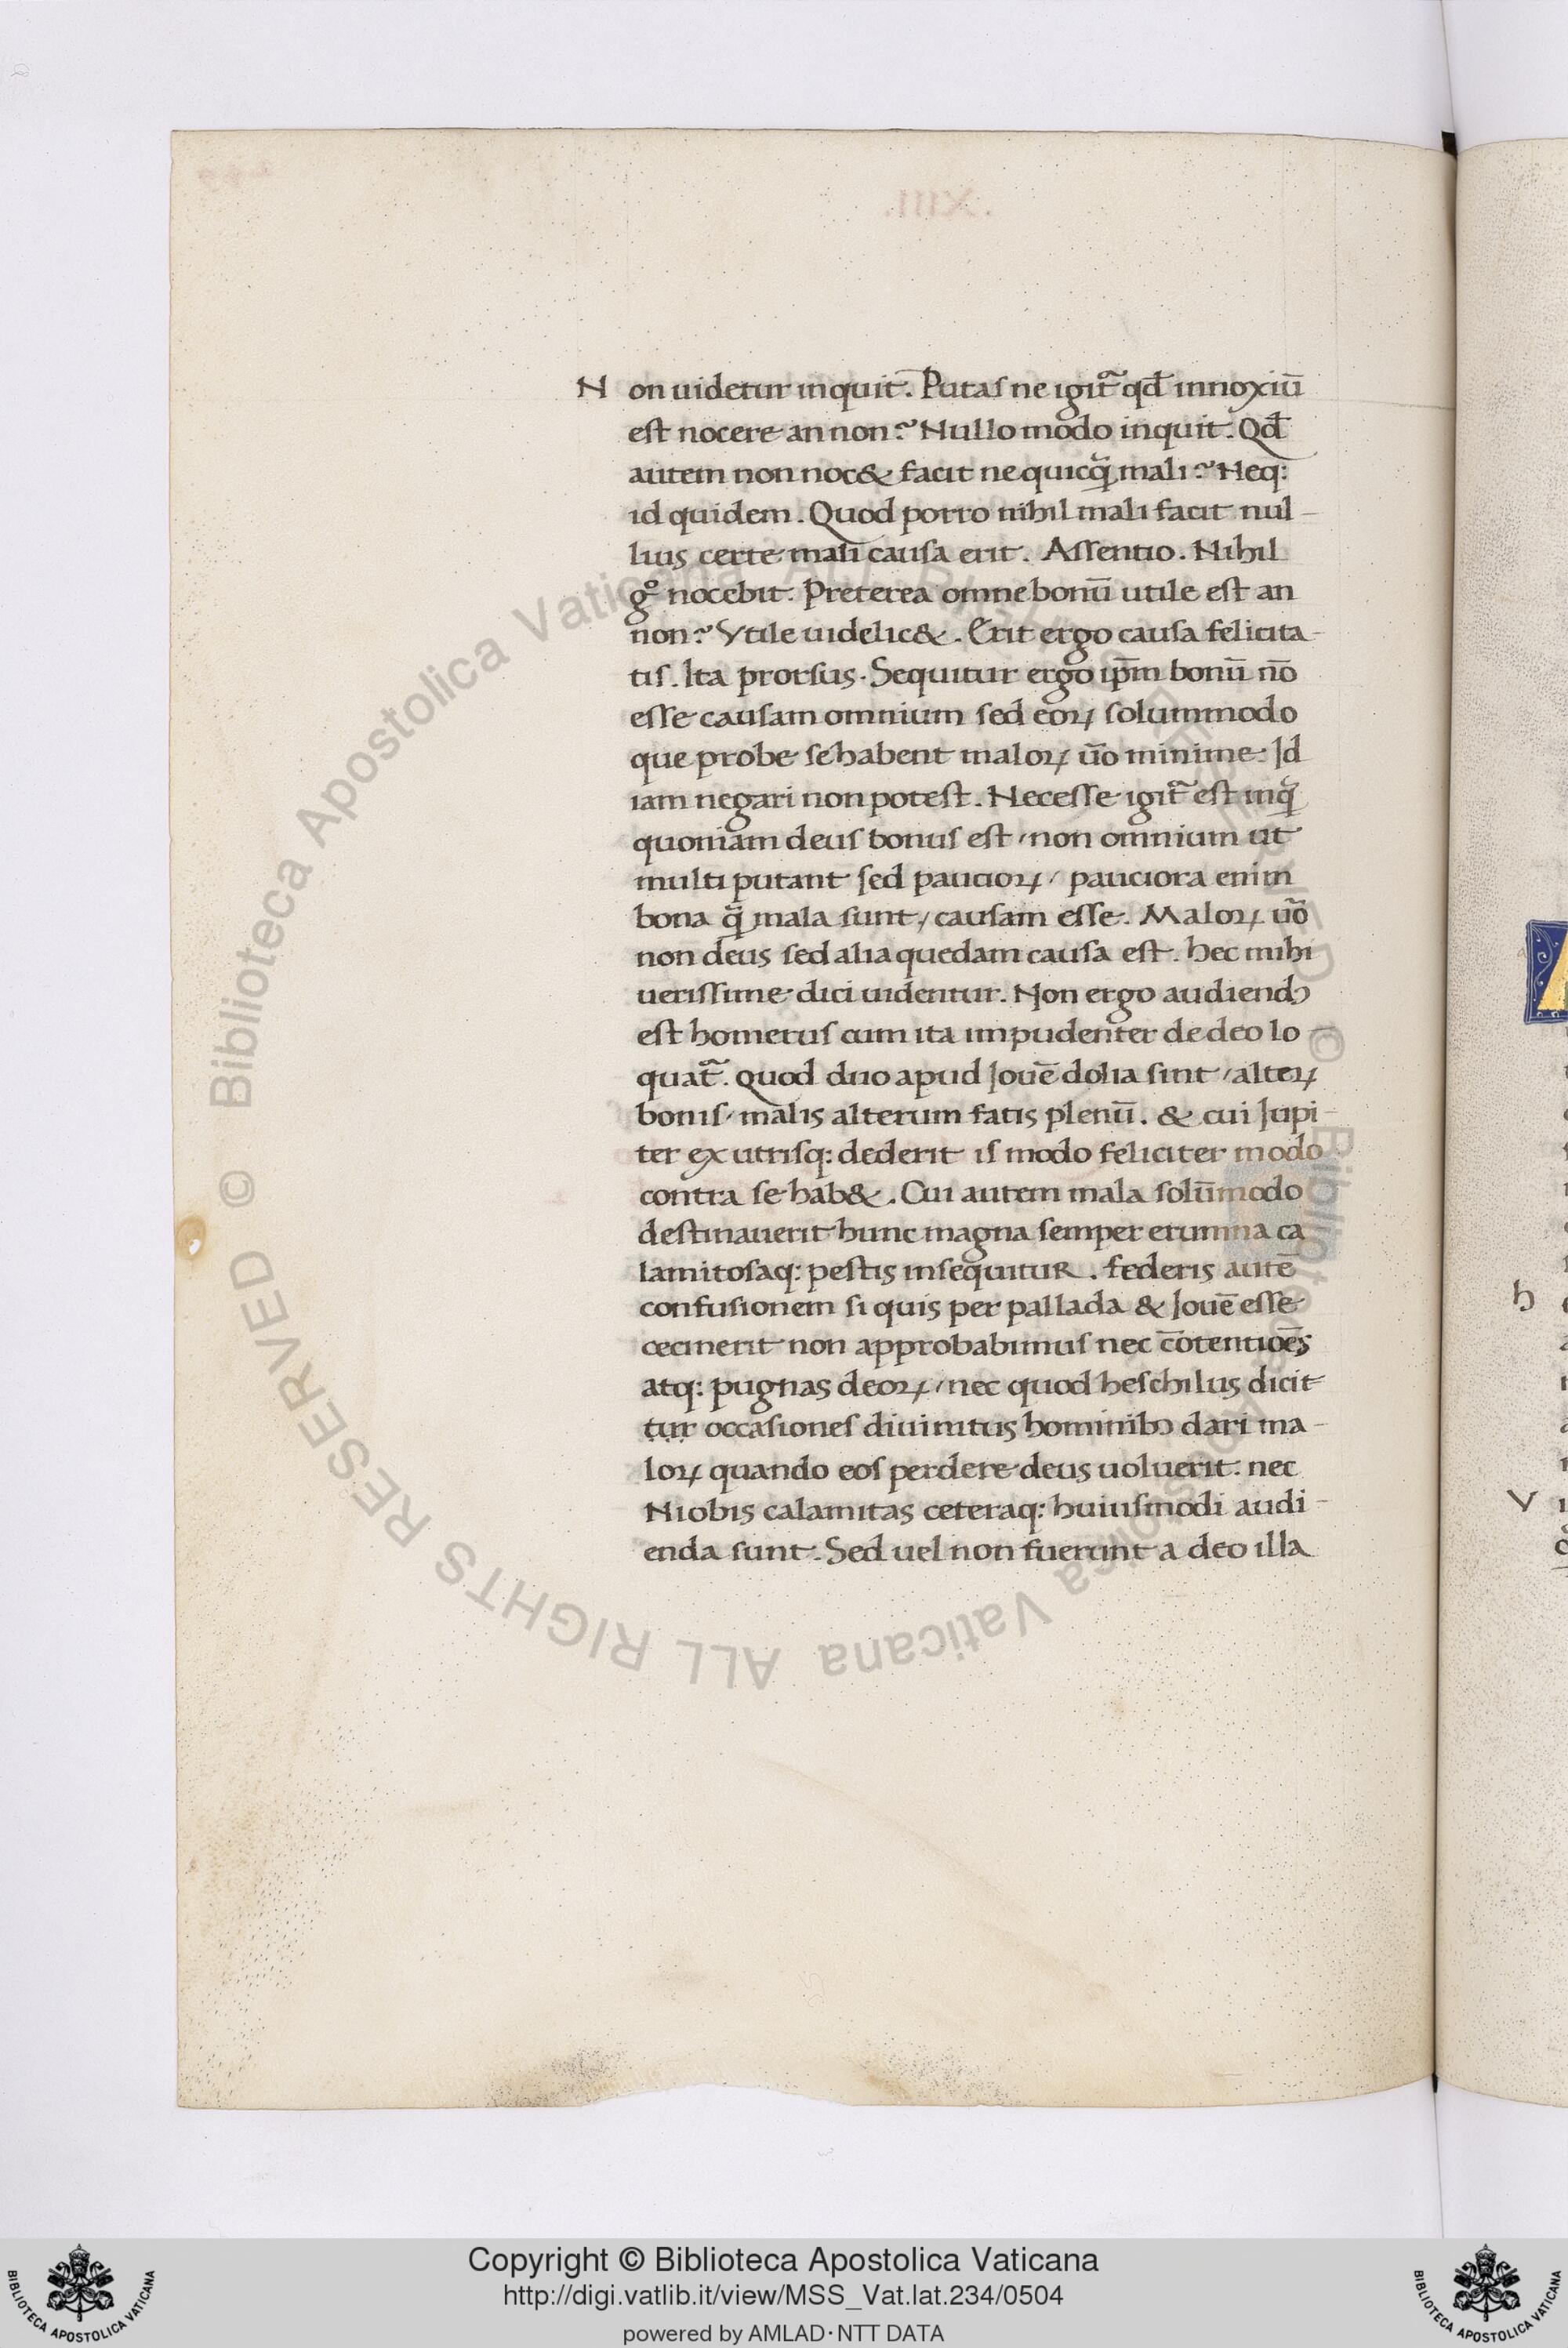 Non uidetur inquit. Putas ne igit᷑ qd̄ innoxiū
est nocere an non? Nullo modo inquit. Qd̄
autem non noc& facit ne quicq̄ mali? Neq:
id quidem. Quod porro nihil mali facit nul-
lius certe mali causa erit. Assentio. Nihil
gͦ nocebit. Preterea omne bonū utile est an
non? Vtile uidelic&. Erit ergo causa felicita-
tis. Ita prorsus. Sequitur ergo ip̄m bonū nō
esse causam omnium sed eoꝝ solummodo
que probe se habent maloꝝ ūo minime. Id
iam negari non potest. Necesse igit᷑ est inq̄
quoniam deus bonus est / non omnium ut
multi putant sed paucioꝝ / pauciora enim
bona q̄ mala sunt / causam esse. Maloꝝ ūo
non deus sed alia quedam causa est. hec mihi
uerissime dici uidentur. Non ergo audiendꝯ
est homerus cum ita impudenter de deo lo-
quat᷑. Quod duo apud Jouē dolia sint / alteꝝ
bonis / malis alterum fatis plenū. & cui Jupi-
ter ex utrisq: dederit is modo feliciter modo
contra se hab&. Cui autem mala solūmodo
destinauerit hunc magna semper erumna ca
lamitosaq: pestis insequitur. federis autē
confusionem si quis per pallada & Jouē esse
cecinerit non approbabimus nec cōtentiōes
atq: pugnas deoꝝ / nec quod heschilus dicit
tur occasiones diuinitus hominibꝯ dari ma-
loꝝ quando eos perdere deus uoluerit. nec
Niobis calamitas ceteraq: huiusmodi audi-
enda sunt. Sed uel non fuerunt a deo illa
h
V
© Biblioteca Apostolica Vaticana ALL RIGHTS RESERVED
© Biblioteca Apostolica Vaticana ALL RIGHTS RESERVED
BIBLIOTECA APOSTOLICA VATICANA
Copyright © Biblioteca Apostolica Vaticana
http://digi.vatlib.it/view/MSS_Vat.lat.234/0504
powered by AMLAD·NTT DATA
BIBLIOTECA APOSTOLICA VATICANA